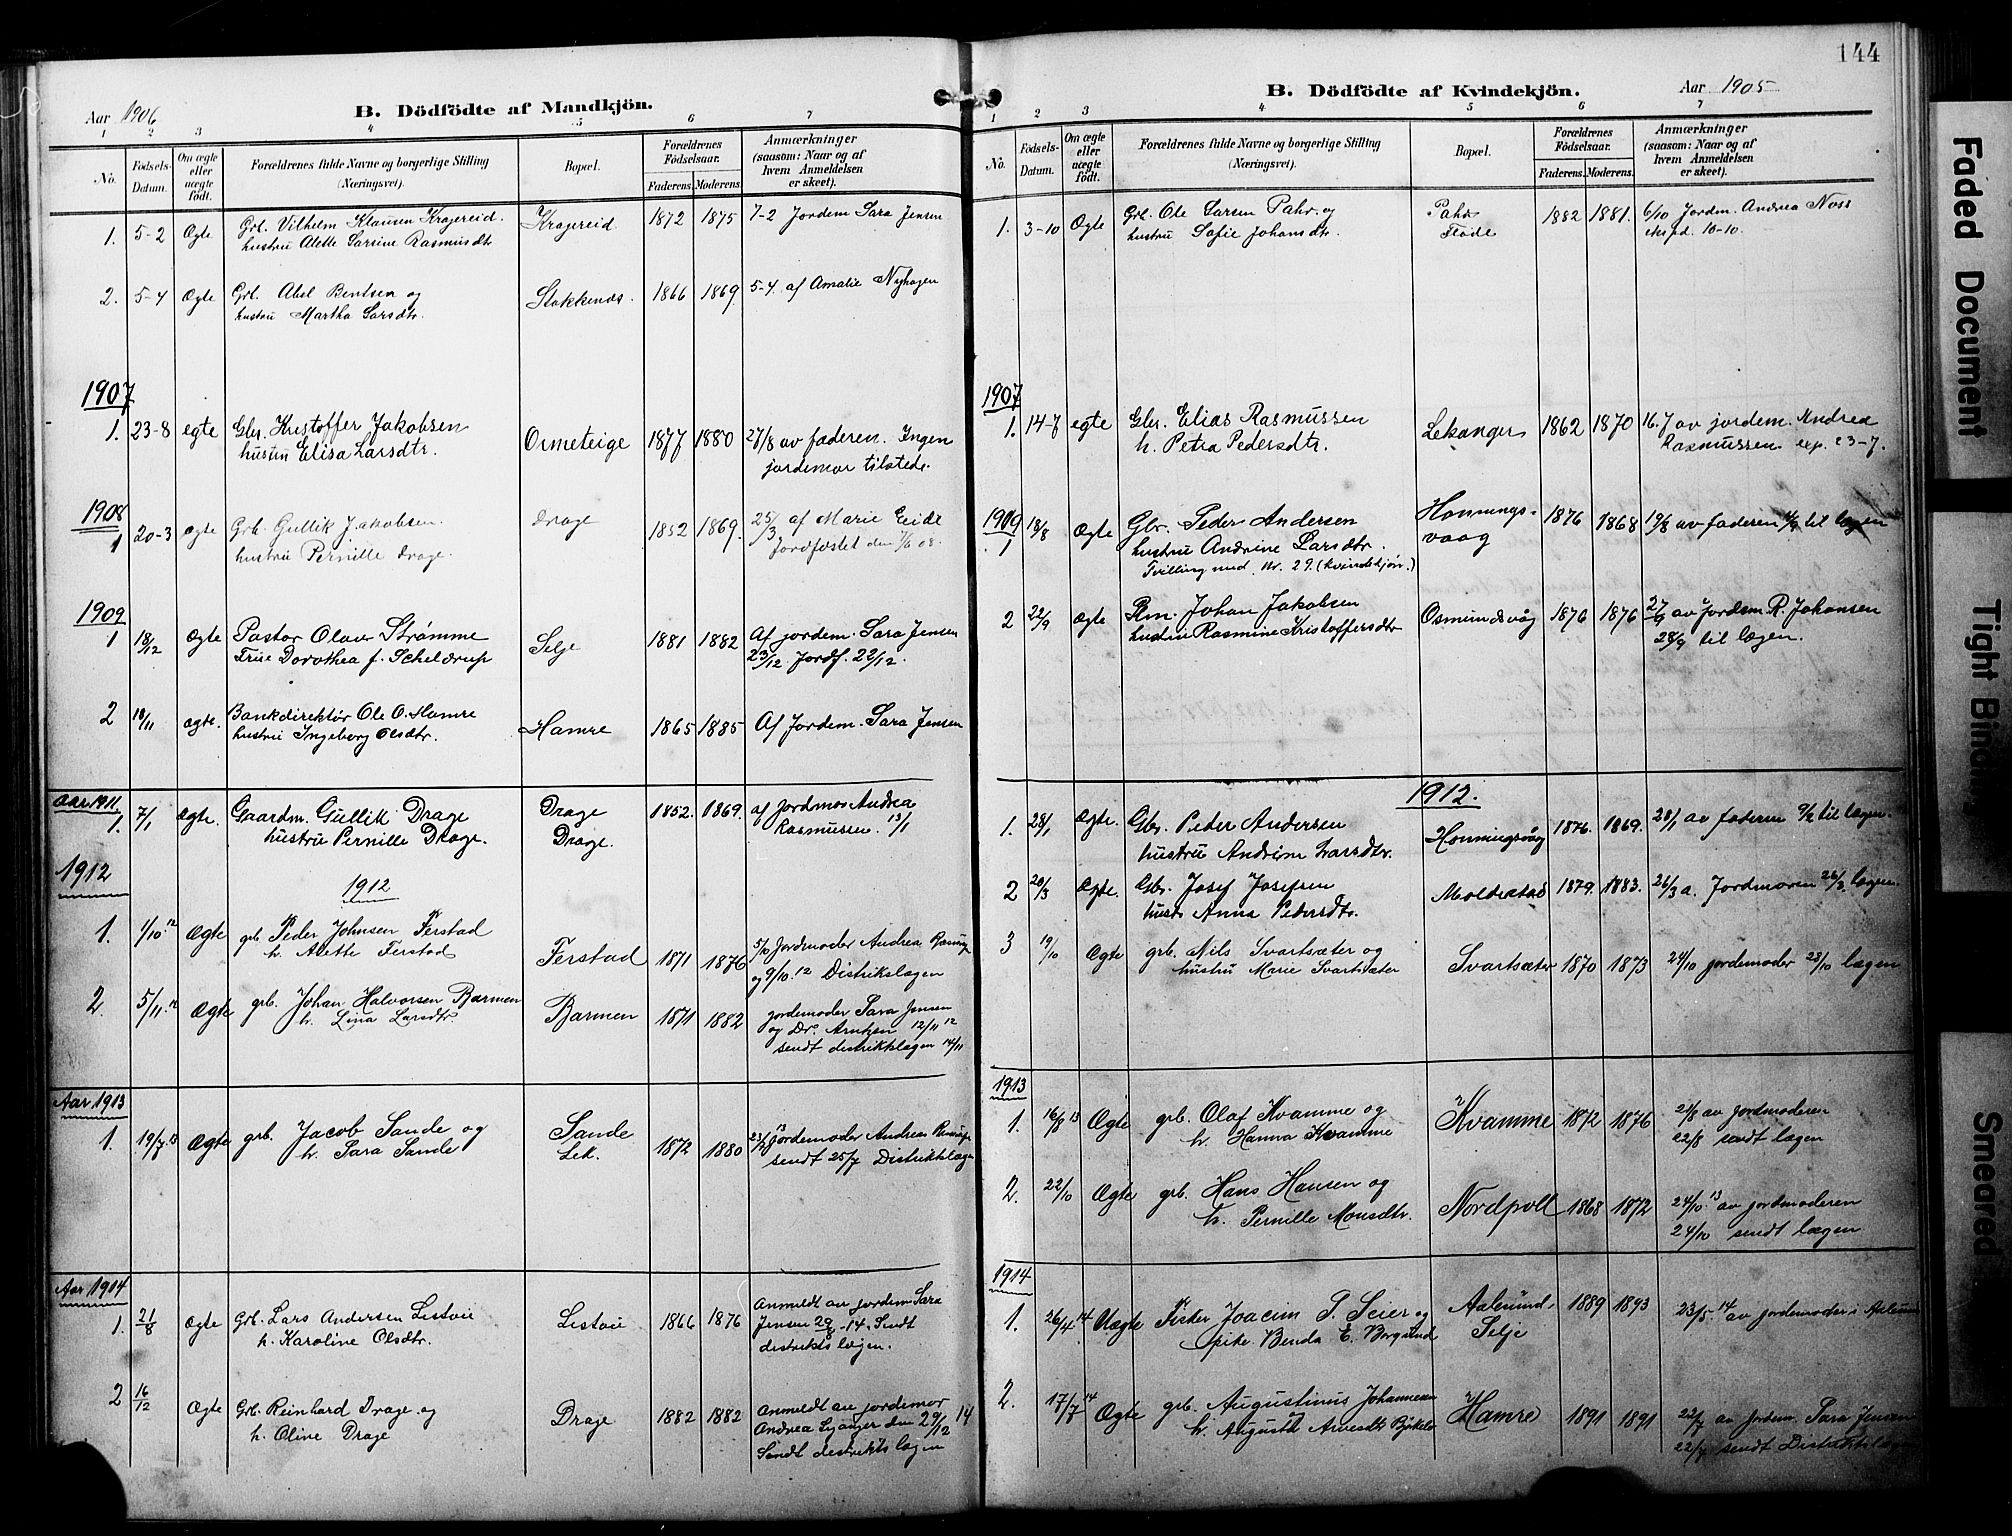 144
Aar 1906
B. Dödfödte af Mandkjön.
1 2 3 4 5 6 7
No.
Födsels-Datum.
Om ægte eller uægte födt.
Forældrenes fulde Navne og borgerlige Stilling
(Næringsvei).
Bopæl.
Forældrenes Födselsaar.
Faderens. Moderens.
Anmærkninger
(saasom: Naar og af
hvem Anmeldelsen
er skeet).
1. 5-2 Ægte Grb. Vilhelm Klausen Krogereid. Krogereid 1872 1875 7-2 Jordem Sara Jensen
hustru Alette Larsine Rasmusdtr
2. 5-4 Ægte Grb. Abel Bentsen og Stokkenæs. 1866 1869 5-4 af Amalie Nyhagen
hustru Martha Larsdtr.
1907
1. 23-8 egte Gbr. Kristoffer Jakobsen Ormeteige 1877 1880 27/8 av faderen. Ingen
hustru Elisa Larsdtr. jordemor tilstede.
1908
1 20-3 ægte Grb. Gullik Jakobsen. Drage 1852 1869. 25/3 af Marie Eide
hustru Pernille Drage. Jordfæstet den 7/6 08.
1909
1 18/12 ægte Pastor Olaver Strømme Selje 1881 1882 Af jordem. Sara Jensen
Frue Dorothea f. Scheldrup 23/12. Jordf. 22/12.
2 18/11 ægte. Bankdirektør Ole O. Hamre Hamre 1865 1885 Af Jordem. Sara Jensen
hustru Ingeborg Olsdtr.
Aar 1911
1. 7/1 ægte. Gaardm. Gullik Drage Drage 1852. 1869. af Jordmor Andrea
hustru Pernille Drage. Drage. Rasmussen. 13/1
1912
1912
1. 1/10.12 Ægte grb Peder Johnsen Ferstad Ferstad 1871 1876 5/10 Jordmoder Andrea
h. Alette Ferstad og 9/10.12 Distrikslægen
2. 5/11.12 Ægte grb. Johan Halvorsen Barmen Barmen 1871 1882 jordemoder Sara Jensen
h. Lina Larsdtr. og Dr. Arntzen 12/11 12
sendt distriktslægen 14/11
Aar 1913
1. 19/7 13 Ægte grb. Jacob Sande og Sande 1872 1880 23/7 13 Jordemoder Andrea
h. Sara Sande Lek. sendt 25/7 Distriktslægen
Aar 1914
1. 21/8 ægte Grb. Lars Andersen Listou Listou 1866 1876 Anmeldt av jordem Sara
h. Karoline Olsdtr. Jensen 29/8-14. Sendt
distrikts lægen.
2 16/12 Ægte Grb. Reinhard Drage og Drage 1882 1882 Anmeldt av jordemor
h. Oline Drage Andrea den 29/12 14
Sendt distriktslægen
B. Dödfödte af Kvindekjön.
Aar 1905
1 2 3 4 5 6 7
No.
Födsels-Datum.
Om ægte eller uægte födt.
Forældrenes fulde Navne og borgerlige Stilling
(Næringsvei).
Bopæl.
Forældrenes Födselsaar.
Faderens. Moderens.
Anmærkninger
(saasom: Naar og af
hvem Anmeldelsen
er skeet).
1. 3-10 Ægte Grb. Ole Larsen Pahr og Pahr 1882 1881. 6/10 Jordm. Andrea Noss
hustru Sofie Johansdtr. Flode eksped. 10-10.
1907
1. 14-7 egte Gbr. Elias Rasmussen Lekanger 1862 1870 16.7 av jordem. Andrea
h. Petra Pedersdtr. Rasmussen exp. 23-7.
1909
1 18/8 Ægte Gbr. Peder Andersen Honnings- 1876 1868 19/8 av faderen til lægen
hustru Andrine Larsdtr. vaag
Tvilling med Nr. 29. (kvindekjön.)
2 22/9 ægte Plm. Johan Jakobsen Osmundsvåg 1876 1876 27/9 av Jordem R. Johansen
hustru Rasmine Kristoffersdtr 28/9 til lægen.
1912.
1. 28/1 Ægte. Gbr. Peder Andersen Honningsvåg 1876. 1869. 28/1 av faderen 9/2 til lægen.
hustru Andrine Larsdtr.
2 20/3 Ægte. Gbr. Josef Josefsen Moldestad 1879. 1883. 26/3 a. Jordmoren 26/3. lægen.
hustr Anna Pedersdtr.
3 19/10 Ægte grb. Nils Svartsæter og Svartsæter 1870 1873 24/10 jordemoder 28/10 lægen
hustru Marie Svartsæter
1913
1. 16/8 13 Ægte grb. Olaf Kvamme og Kvamme 1872 1876 21/8 av jordmoderen
h. Hanna Kvamme 22/8 sendt lægen
2. 22/10 Ægte grb. Hans Hansen og Nordpoll 1868 1872 24/10 13 av jordmoderen
h. Pernille Monsdtr. 24/10 sendt lægen
1914
1. 26/4 14 Uægte Fisker Joacim P. Seier og Aalesund- 1889 1893 23/5. 14 av jordemoder i
pike Benda E. Borgund Selje
2. 17/7 14 Ægte grb. Augustinus Johannesen Hamre 1891 1891 22/7 av jordem. Sara Jensen
h. Augusta 22/7 sendt Distriktslægen
Faded Document
Tight Binding
Smeared